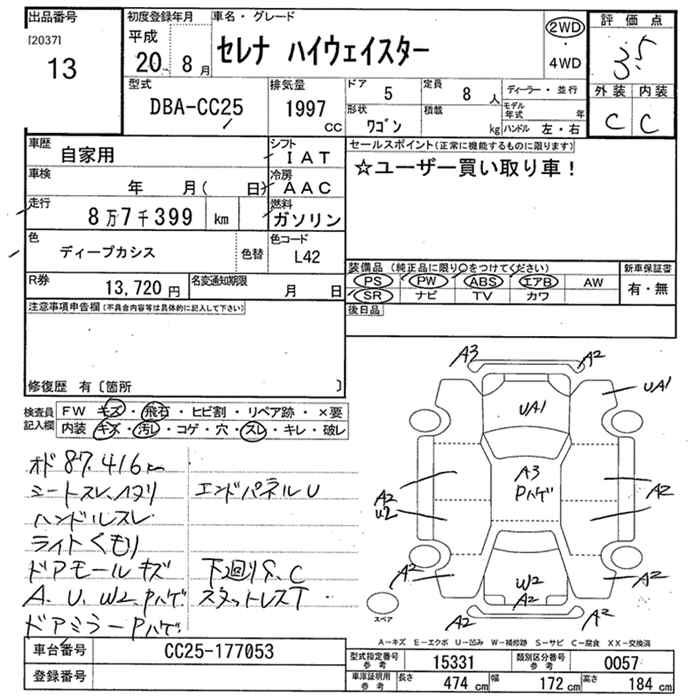 出品番号 初度登録年月 車名・グレード 評価点
[2037] 平成 セレナ ハイウェイスター 2WD 3.5
13 20年 8月 ・ 4WD
型式 排気量 ドア 定員 ディーラー・並行 外装 内装
DBA-CC25 1997 cc 5 8人 モデル年式 年 C C
形状 積載 ハンドル 左・右
ワゴン kg
車歴 自家用 シフト IAT セールスポイント(正常に機能するものに限ります)
車検 年 月( 日) 冷房 AAC ☆ユーザー買い取り車!
走行 8万7千399 km 燃料 ガソリン
色 ディープカシス 色替 色コード L42
R券 13,720円 名変通知期限 月 日
装備品(純正品に限り○をつけてください) 新車保証書
PS PW ABS エアB AW 有・無
SR ナビ TV カワ
注意事項申告欄(不具合内容等は具体的に記入して下さい) 後日品
修復歴 有〔箇所 〕
検査員記入欄 FW キズ・飛石・ヒビ割・リペア跡・×要
内装 キズ・汚レ・コゲ・穴・スレ・キレ・破レ
オド 87,416km
シートスレ、ハタリ エンドパネルU
ハンドルスレ
ライトくもり
ドアモールキズ 下廻りS、C
A、U、W2、Pハゲ スタットレスT
ドアミラーPハゲ
A3 A2
UA1 UA1
A3 Pハゲ
A2 U2 A2
A2 W2 A2
A2
A2 A2
スペア
A-キズ E-エクボ U-凹み W-補修跡 S-サビ C-腐食 XX-交換済
車台番号 CC25-177053 型式指定番号 参考 15331 類別区分番号 参考 0057
登録番号 車庫証明用 参考 長さ 474cm 幅 172cm 高さ 184cm